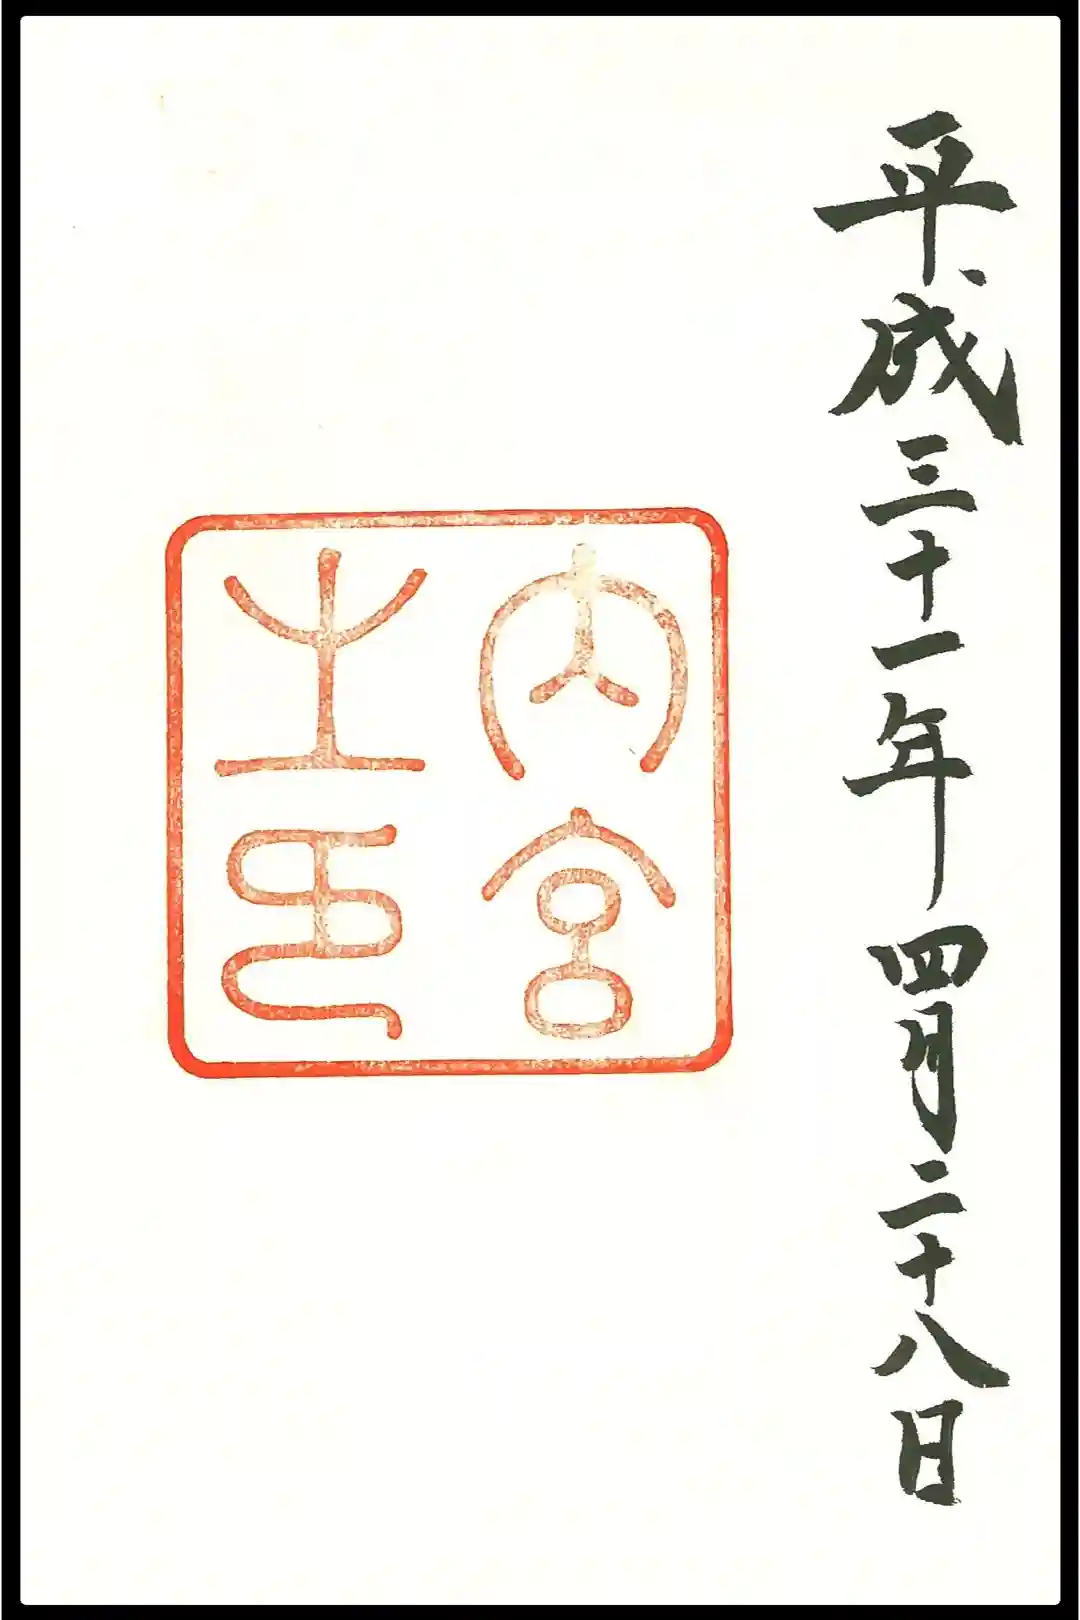 平成三十一年四月二十八日
内宮
之印